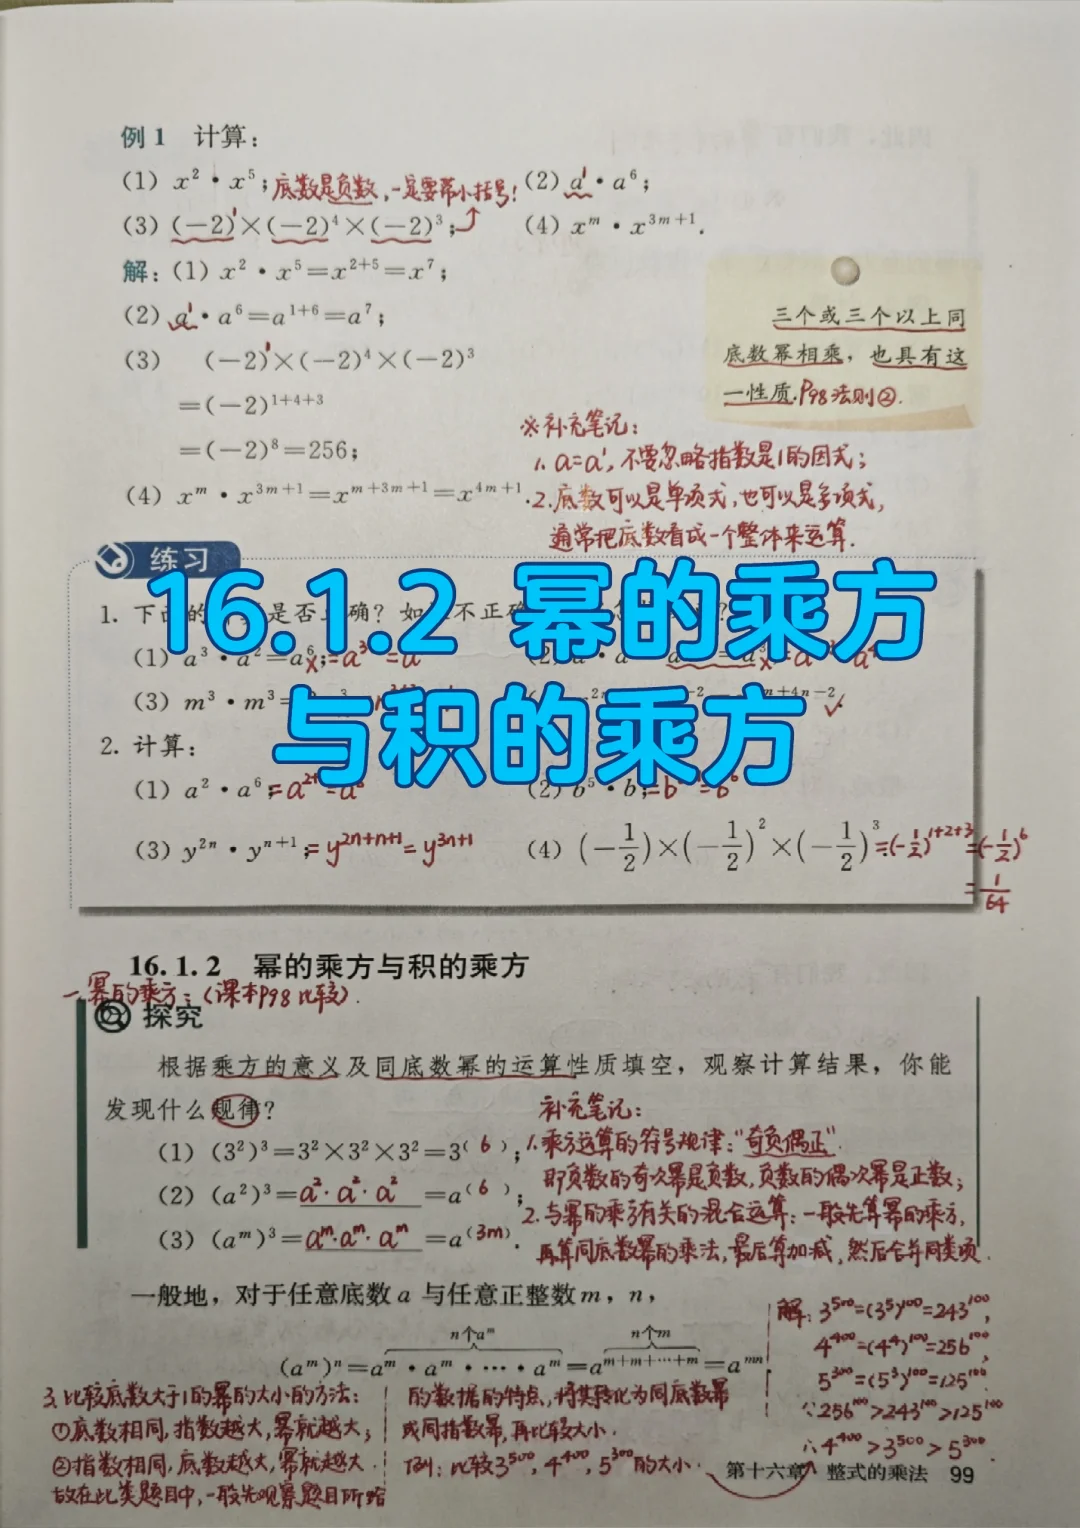 例1 计算：
(1) x²·x⁵；底数是负数，一定要带小括号！(2) a¹·a⁶；
(3) (-2)¹×(-2)⁴×(-2)³；(4) xᵐ·x³ᵐ⁺¹.
解：(1) x²·x⁵=x²⁺⁵=x⁷；
(2) a¹·a⁶=a¹⁺⁶=a⁷；
(3) (-2)¹×(-2)⁴×(-2)³
=(-2)¹⁺⁴⁺³
=(-2)⁸=256；
(4) xᵐ·x³ᵐ⁺¹=xᵐ⁺³ᵐ⁺¹=x⁴ᵐ⁺¹.
三个或三个以上同
底数幂相乘，也具有这
一性质.P98法则②.
※补充笔记：
1. a=a¹，不要忽略指数是1的因式；
2. 底数可以是单项式，也可以是多项式，
通常把底数看成一个整体来运算.
练习
16.1.2 幂的乘方
与积的乘方
1. 下 的 是否 确？如 不正确
(1) a³·a²=a⁶ ×
(3) m³·m³=
2. 计算：
(1) a²·a⁶；
(2) b⁵·b；=b =b⁶
(3) y²ⁿ·yⁿ⁺¹；=y²ⁿ⁺ⁿ⁺¹=y³ⁿ⁺¹
(4) (-1/2)×(-1/2)²×(-1/2)³=(-1/2)¹⁺²⁺³=(-1/2)⁶
=1/64
16.1.2 幂的乘方与积的乘方
一.幂的乘方：(课本P98比较).
探究
根据乘方的意义及同底数幂的运算性质填空，观察计算结果，你能
发现什么规律？
(1) (3²)³=3²×3²×3²=3⁽⁶⁾；
(2) (a²)³=a²·a²·a²=a⁽⁶⁾；
(3) (aᵐ)³=aᵐ·aᵐ·aᵐ=a⁽³ᵐ⁾.
补充笔记：
1.乘方运算的符号规律：“奇负偶正”.
即负数的奇次幂是负数，负数的偶次幂是正数；
2.与幂的乘方有关的混合运算：一般先算幂的乘方，
再算同底数幂的乘法，最后算加减，然后合并同类项.
一般地，对于任意底数a与任意正整数m，n，
n个aᵐ n个m
(aᵐ)ⁿ=aᵐ·aᵐ·…·aᵐ=aᵐ⁺ᵐ⁺…⁺ᵐ=aᵐⁿ
3.比较底数大于1的幂的大小的方法：
①底数相同，指数越大，幂就越大；
②指数相同，底数越大，幂就越大.
故在此类题目中，一般先观察题目所给
的数据的特点，将其转化为同底数幂
或同指数幂，再比较大小.
例：比较3⁵⁰⁰，4⁴⁰⁰，5³⁰⁰的大小.
解：3⁵⁰⁰=(3⁵)¹⁰⁰=243¹⁰⁰，
4⁴⁰⁰=(4⁴)¹⁰⁰=256¹⁰⁰，
5³⁰⁰=(5³)¹⁰⁰=125¹⁰⁰.
∵256¹⁰⁰>243¹⁰⁰>125¹⁰⁰
∴4⁴⁰⁰>3⁵⁰⁰>5³⁰⁰.
第十六章 整式的乘法 99